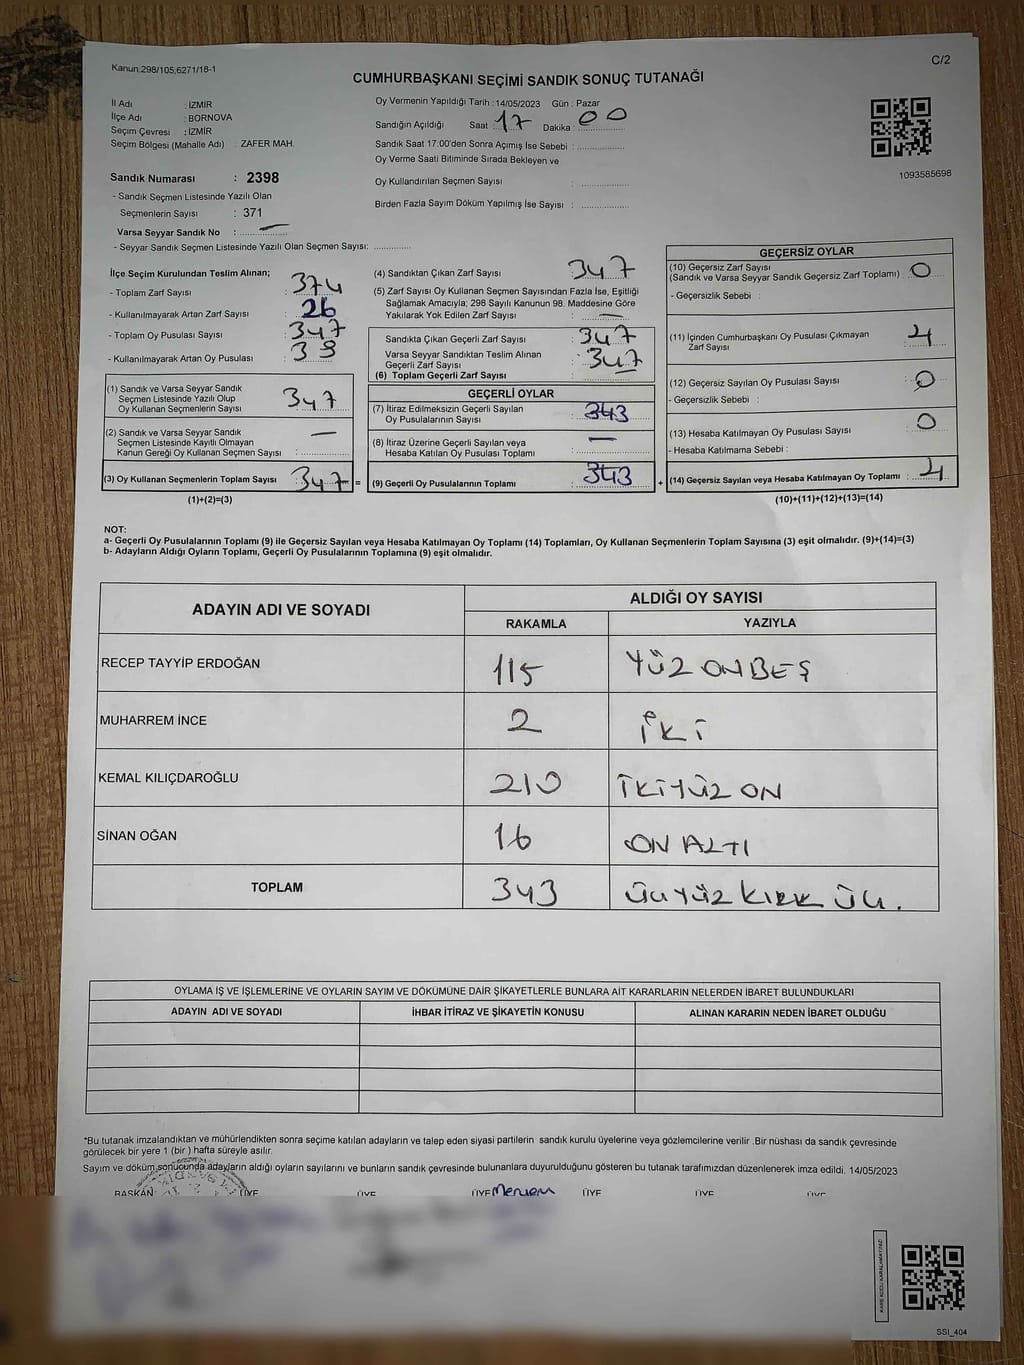 Kanun:298/105;6271/18-1
C/2
CUMHURBAŞKANI SEÇİMİ SANDIK SONUÇ TUTANAĞI
İl Adı : İZMİR
İlçe Adı : BORNOVA
Seçim Çevresi : İZMİR
Seçim Bölgesi (Mahalle Adı) : ZAFER MAH.
Sandık Numarası : 2398
- Sandık Seçmen Listesinde Yazılı Olan
Seçmenlerin Sayısı : 371
Varsa Seyyar Sandık No : —
- Seyyar Sandık Seçmen Listesinde Yazılı Olan Seçmen Sayısı: ............
Oy Vermenin Yapıldığı Tarih :14/05/2023 Gün : Pazar
Sandığın Açıldığı Saat : 17 Dakika : 00
Sandık Saat 17.00'den Sonra Açımış İse Sebebi : ...............
Oy Verme Saati Bitiminde Sırada Bekleyen ve
Oy Kullandırılan Seçmen Sayısı : ...............
Birden Fazla Sayım Döküm Yapılmış İse Sayısı : ...............
1093585698
İlçe Seçim Kurulundan Teslim Alınan;
- Toplam Zarf Sayısı : 374
- Kullanılmayarak Artan Zarf Sayısı : 26
- Toplam Oy Pusulası Sayısı : 347
- Kullanılmayarak Artan Oy Pusulası : 38
(1) Sandık ve Varsa Seyyar Sandık
Seçmen Listesinde Yazılı Olup
Oy Kullanan Seçmenlerin Sayısı : 347
(2) Sandık ve Varsa Seyyar Sandık
Seçmen Listesinde Kayıtlı Olmayan
Kanun Gereği Oy Kullanan Seçmen Sayısı : —
(3) Oy Kullanan Seçmenlerin Toplam Sayısı : 347 =
(1)+(2)=(3)
(4) Sandıktan Çıkan Zarf Sayısı : 347
(5) Zarf Sayısı Oy Kullanan Seçmen Sayısından Fazla İse, Eşitliği
Sağlamak Amacıyla; 298 Sayılı Kanunun 98. Maddesine Göre
Yakılarak Yok Edilen Zarf Sayısı : —
Sandıkta Çıkan Geçerli Zarf Sayısı : 347
Varsa Seyyar Sandıktan Teslim Alınan
Geçerli Zarf Sayısı : —
(6) Toplam Geçerli Zarf Sayısı : 347
GEÇERLİ OYLAR
(7) İtiraz Edilmeksizin Geçerli Sayılan
Oy Pusulalarının Sayısı : 343
(8) İtiraz Üzerine Geçerli Sayılan veya
Hesaba Katılan Oy Pusulası Toplamı : —
(9) Geçerli Oy Pusulalarının Toplamı : 343 +
GEÇERSİZ OYLAR
(10) Geçersiz Zarf Sayısı
(Sandık ve Varsa Seyyar Sandık Geçersiz Zarf Toplamı) : 0
- Geçersizlik Sebebi :
(11) İçinden Cumhurbaşkanı Oy Pusulası Çıkmayan
Zarf Sayısı : 4
(12) Geçersiz Sayılan Oy Pusulası Sayısı : 0
- Geçersizlik Sebebi :
(13) Hesaba Katılmayan Oy Pusulası Sayısı : 0
- Hesaba Katılmama Sebebi :
(14) Geçersiz Sayılan veya Hesaba Katılmayan Oy Toplamı : 4
(10)+(11)+(12)+(13)=(14)
NOT:
a- Geçerli Oy Pusulalarının Toplamı (9) ile Geçersiz Sayılan veya Hesaba Katılmayan Oy Toplamı (14) Toplamları, Oy Kullanan Seçmenlerin Toplam Sayısına (3) eşit olmalıdır. (9)+(14)=(3)
b- Adayların Aldığı Oyların Toplamı, Geçerli Oy Pusulalarının Toplamına (9) eşit olmalıdır.
ADAYIN ADI VE SOYADI
ALDIĞI OY SAYISI
RAKAMLA YAZIYLA
RECEP TAYYİP ERDOĞAN 115 YÜZ ONBEŞ
MUHARREM İNCE 2 İKİ
KEMAL KILIÇDAROĞLU 210 İKİYÜZ ON
SİNAN OĞAN 16 ON ALTI
TOPLAM 343 ÜÇYÜZ KIRK ÜÇ.
OYLAMA İŞ VE İŞLEMLERİNE VE OYLARIN SAYIM VE DÖKÜMÜNE DAİR ŞİKAYETLERLE BUNLARA AİT KARARLARIN NELERDEN İBARET BULUNDUKLARI
ADAYIN ADI VE SOYADI İHBAR İTİRAZ VE ŞİKAYETİN KONUSU ALINAN KARARIN NEDEN İBARET OLDUĞU
*Bu tutanak imzalandıktan ve mühürlendikten sonra seçime katılan adayların ve talep eden siyasi partilerin sandık kurulu üyelerine veya gözlemcilerine verilir .Bir nüshası da sandık çevresinde
görülecek bir yere 1 (bir ) hafta süreyle asılır.
Sayım ve döküm sonucunda adayların aldığı oyların sayılarını ve bunların sandık çevresinde bulunanlara duyurulduğunu gösteren bu tutanak tarafımızdan düzenlenerek imza edildi. 14/05/2023
BAŞKAN ÜYE ÜYE ÜYE Meryem ÜYE ÜYE ÜYE
SSI_404